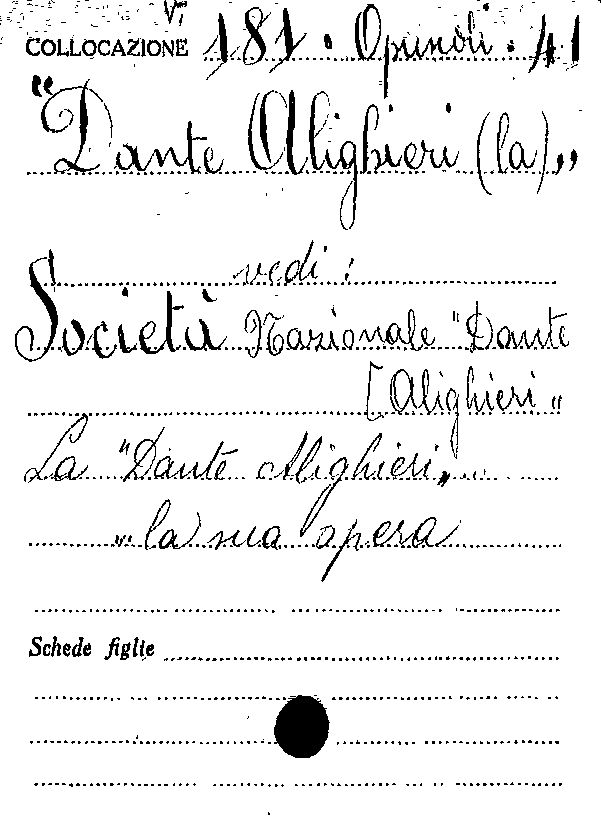 V,
COLLOCAZIONE 181. Opuscoli. 41
"Dante Alighieri (la)„
vedi:
Società Nazionale "Dante
[Alighieri„
La "Dante Alighieri„
la sua opera
Schede figlie